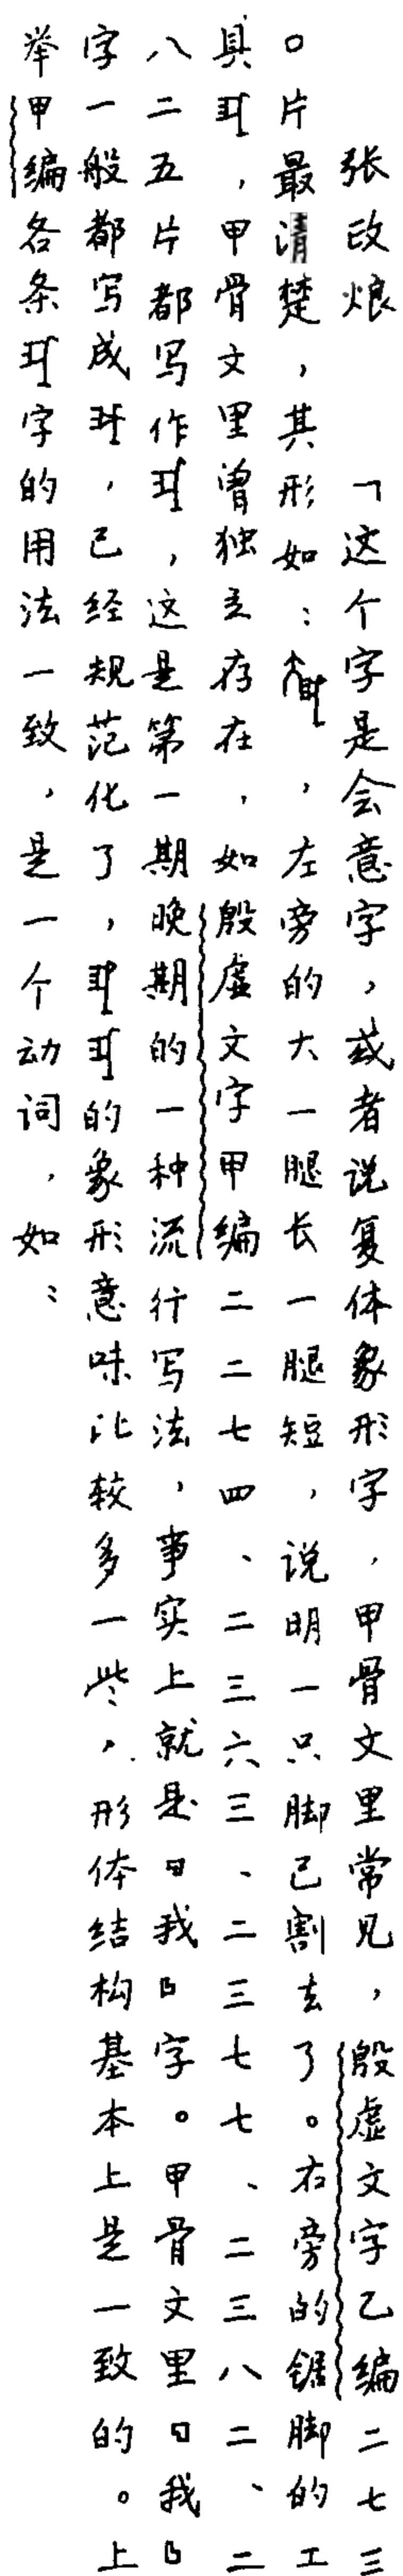 张政烺　「这个字是会意字，或者说复体象形字，甲骨文里常见，殷虚文字乙编二七三
〇片最清楚，其形如：，左旁的大一腿长一腿短，说明一只脚已割去了。右旁的锯脚的工
具，甲骨文里曾独立存在，如殷虚文字甲编二二七四、二三六三、二三七七、二三八二、二
八二五片都写作，这是第一期晚期的一种流行写法，事实上就是「我」字。甲骨文里「我」
字一般都写成，已经规范化了，的象形意味比较多一些，形体结构基本上是一致的。上
举甲编各条字的用法一致，是一个动词，如：